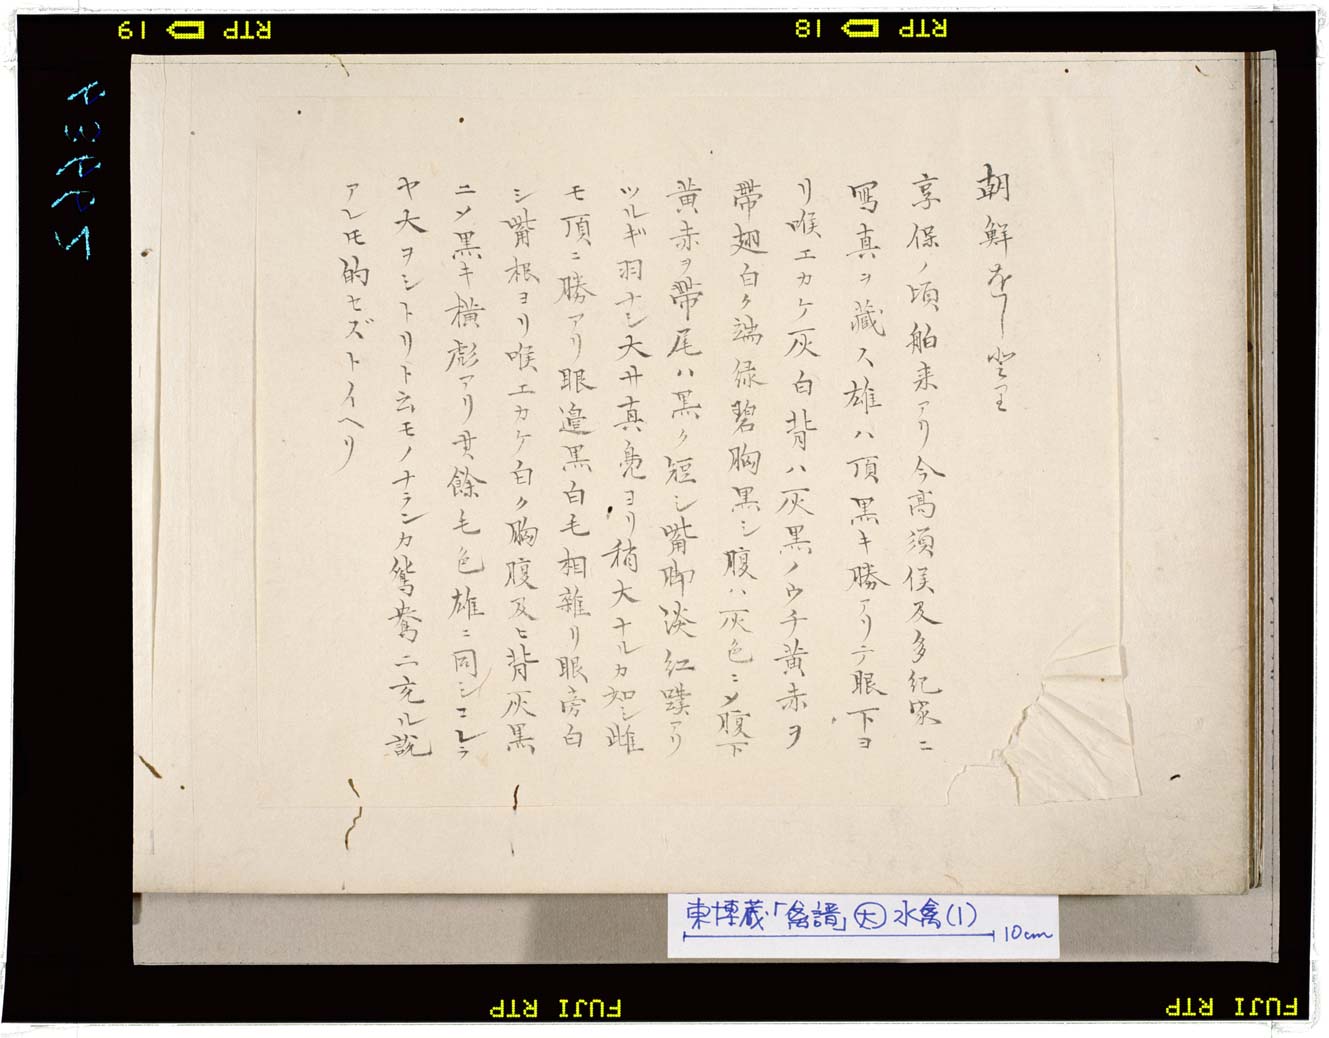 朝鮮をしとり
享保ノ頃舶来アリ今高須侯及多紀家ニ
写真ヲ蔵ス雄ハ頂黒キ勝アリテ眼下ヨ
リ喉エカケ灰白背ハ灰黒ノウチ黄赤ヲ
帯翅白ク端緑碧胸黒シ腹ハ灰色ニ〆腹下
黄赤ヲ帯尾ハ黒ク短シ嘴脚淡紅蹼アリ
ツルギ羽ナシ大サ真鳬ヨリ稍大ナルカ知シ雌
モ頂ニ勝アリ眼邉黒白毛相雜リ眼旁白
シ嘴根ヨリ喉エカケ白ク胸腹及ヒ背灰黒
ニ〆黒キ横彪アリ其餘毛色雄ニ同シコレラ
ヤ大ヲシトリト云モノナランカ鴛鴦ニ充ル説
アレ𪜈的セズトイヘリ
東博蔵「禽譜」大 水禽(1)
10cm
19 RTP
18 RTP
FUJI RTP
FUJI RTP